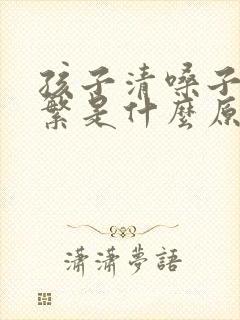 孩子清嗓子
繁是什麼原
瀟瀟夢語